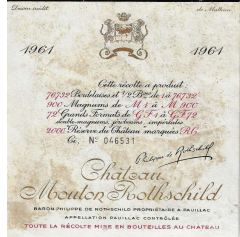 Dessin inédit de Mathieu
1961 1961
Cette récolte a produit
76732 Bordelaises et 1/2 Bses de 1 à 76732
900 Magnums de M 1 à M 900
72 Grands Formats de G F 1 à G F 72
double-magnums, jéroboams, impériales
2000 Réserve du Château marquées R.C.
Ce, No 046531
Philippe de Rothschild
Château
Mouton Rothschild
BARON PHILIPPE DE ROTHSCHILD PROPRIÉTAIRE A PAUILLAC
APPELLATION PAUILLAC CONTRÔLÉE
TOUTE LA RÉCOLTE MISE EN BOUTEILLES AU CHÂTEAU